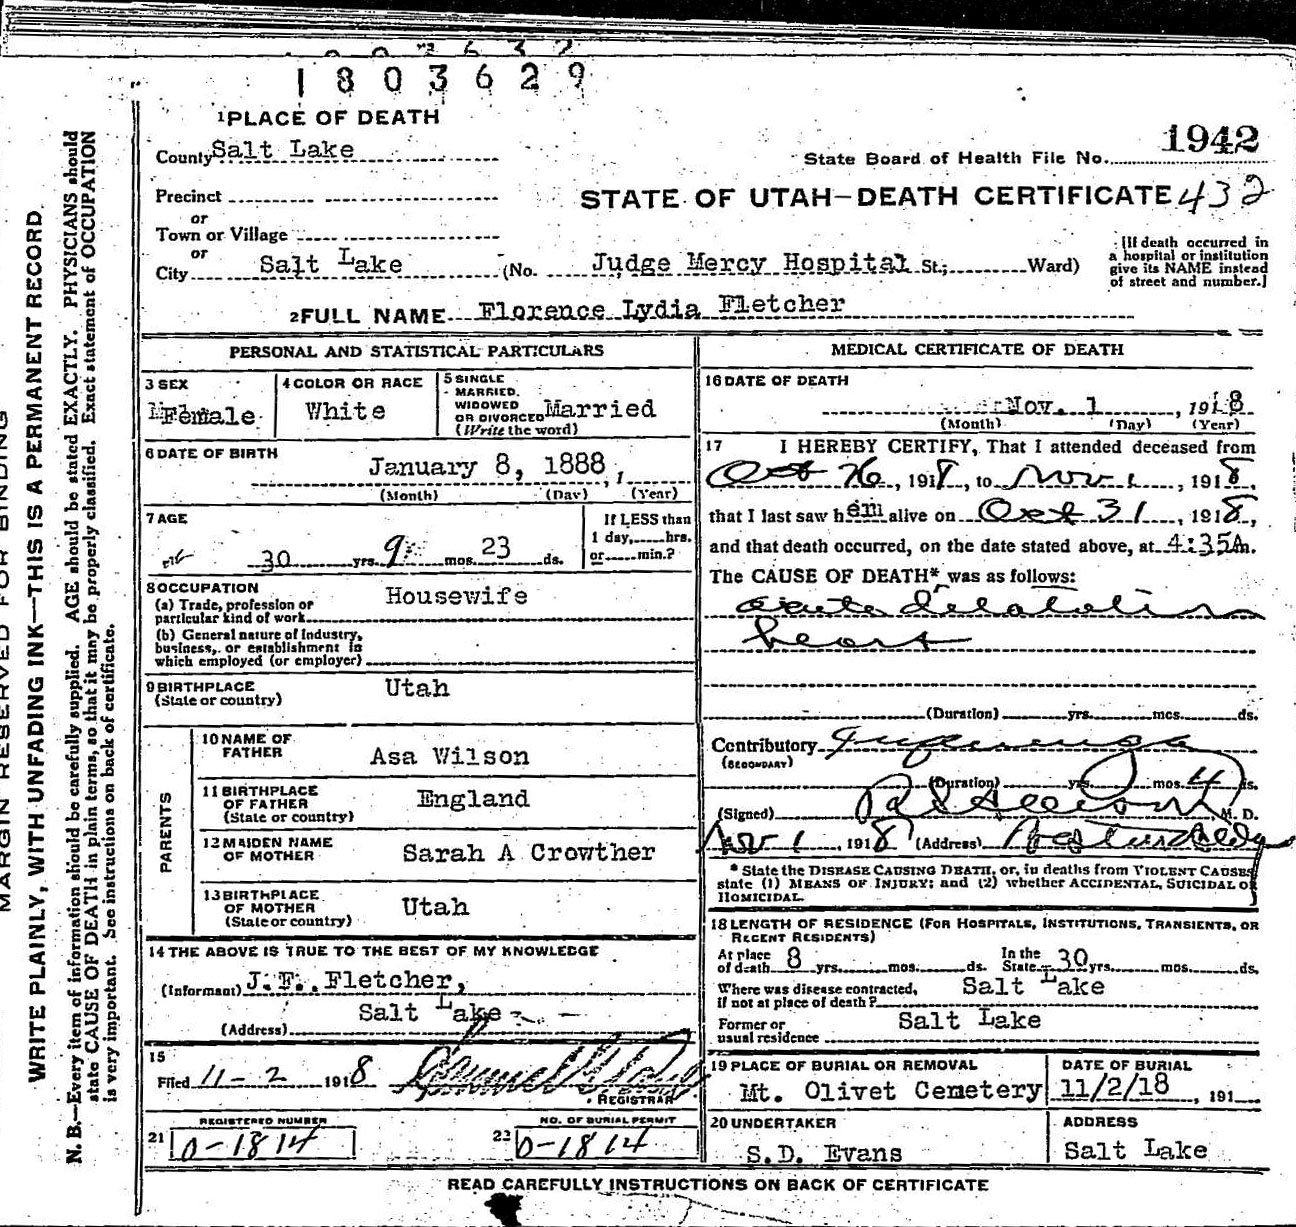 1803629
1 PLACE OF DEATH
County Salt Lake
State Board of Health File No. 1942
Precinct
STATE OF UTAH—DEATH CERTIFICATE 432
or
Town or Village
or
City Salt Lake (No. Judge Mercy Hospital St.; Ward)
[If death occurred in
a hospital or institution
give its NAME instead
of street and number.]
2 FULL NAME Florence Lydia Fletcher
PERSONAL AND STATISTICAL PARTICULARS
3 SEX
Female
4 COLOR OR RACE
White
5 SINGLE
MARRIED,
WIDOWED
OR DIVORCED Married
(Write the word)
6 DATE OF BIRTH
January 8, 1888,
(Month) (Day) (Year)
7 AGE
30 yrs. 9 mos. 23 ds.
If LESS than
1 day, hrs.
or min.?
8 OCCUPATION Housewife
(a) Trade, profession or
particular kind of work
(b) General nature of Industry,
business, or establishment in
which employed (or employer)
9 BIRTHPLACE Utah
(State or country)
PARENTS
10 NAME OF
FATHER Asa Wilson
11 BIRTHPLACE
OF FATHER England
(State or country)
12 MAIDEN NAME
OF MOTHER Sarah A Crowther
13 BIRTHPLACE
OF MOTHER Utah
(State or country)
14 THE ABOVE IS TRUE TO THE BEST OF MY KNOWLEDGE
(Informant) J. F. Fletcher,
Salt Lake
(Address)
15
Filed 11-2 1918
REGISTRAR
REGISTERED NUMBER
21 0-1814
NO. OF BURIAL PERMIT
22 0-1814
MEDICAL CERTIFICATE OF DEATH
16 DATE OF DEATH
Nov. 1, 1918
(Month) (Day) (Year)
17 I HEREBY CERTIFY, That I attended deceased from
Oct 26, 1918, to Nov 1, 1918,
that I last saw her alive on Oct 31, 1918,
and that death occurred, on the date stated above, at 4:35 A m.
The CAUSE OF DEATH* was as follows:
acute dilatation
heart
(Duration) yrs. mos. ds.
Contributory Influenza
(SECONDARY)
(Duration) yrs. mos. 4 ds.
(Signed) M. D.
Nov 1, 1918 (Address)
* State the DISEASE CAUSING DEATH, or, in deaths from VIOLENT CAUSES
state (1) MEANS OF INJURY; and (2) whether ACCIDENTAL, SUICIDAL OR
HOMICIDAL.
18 LENGTH OF RESIDENCE (FOR HOSPITALS, INSTITUTIONS, TRANSIENTS, OR
RECENT RESIDENTS)
At place
of death 8 yrs. mos. ds.
In the
State 30 yrs. mos. ds.
Where was disease contracted, Salt Lake
if not at place of death?
Former or
usual residence Salt Lake
19 PLACE OF BURIAL OR REMOVAL
Mt. Olivet Cemetery
DATE OF BURIAL
11/2/18, 191
20 UNDERTAKER
S.D. Evans
ADDRESS
Salt Lake
READ CAREFULLY INSTRUCTIONS ON BACK OF CERTIFICATE
MARGIN RESERVED FOR BINDING
WRITE PLAINLY, WITH UNFADING INK—THIS IS A PERMANENT RECORD
N. B.—Every item of information should be carefully supplied. AGE should be stated EXACTLY. PHYSICIANS should
state CAUSE OF DEATH in plain terms, so that it may be properly classified. Exact statement of OCCUPATION
is very important. See instructions on back of certificate.